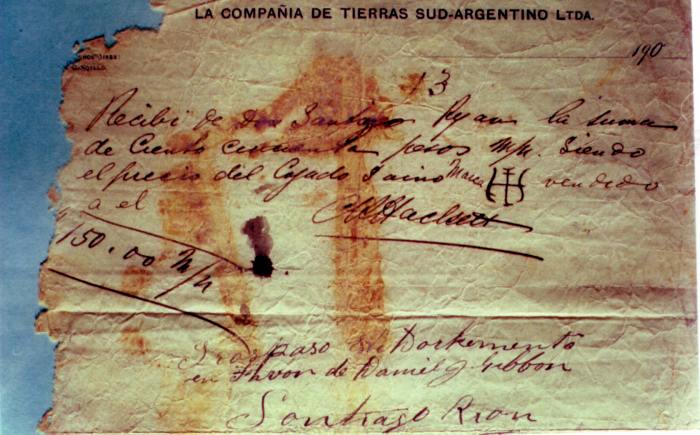 LA COMPAÑIA DE TIERRAS SUD-ARGENTINO LTDA.
190
13
Recibi de Don Santiago Ryan la suma
de Ciento cincuenta pesos m/n. Siendo
el precio del Marca vendido
a el
$150.00 m/n
Traspaso Dockemento
en Favor de Daniel J Gibbon
Santiago Rion